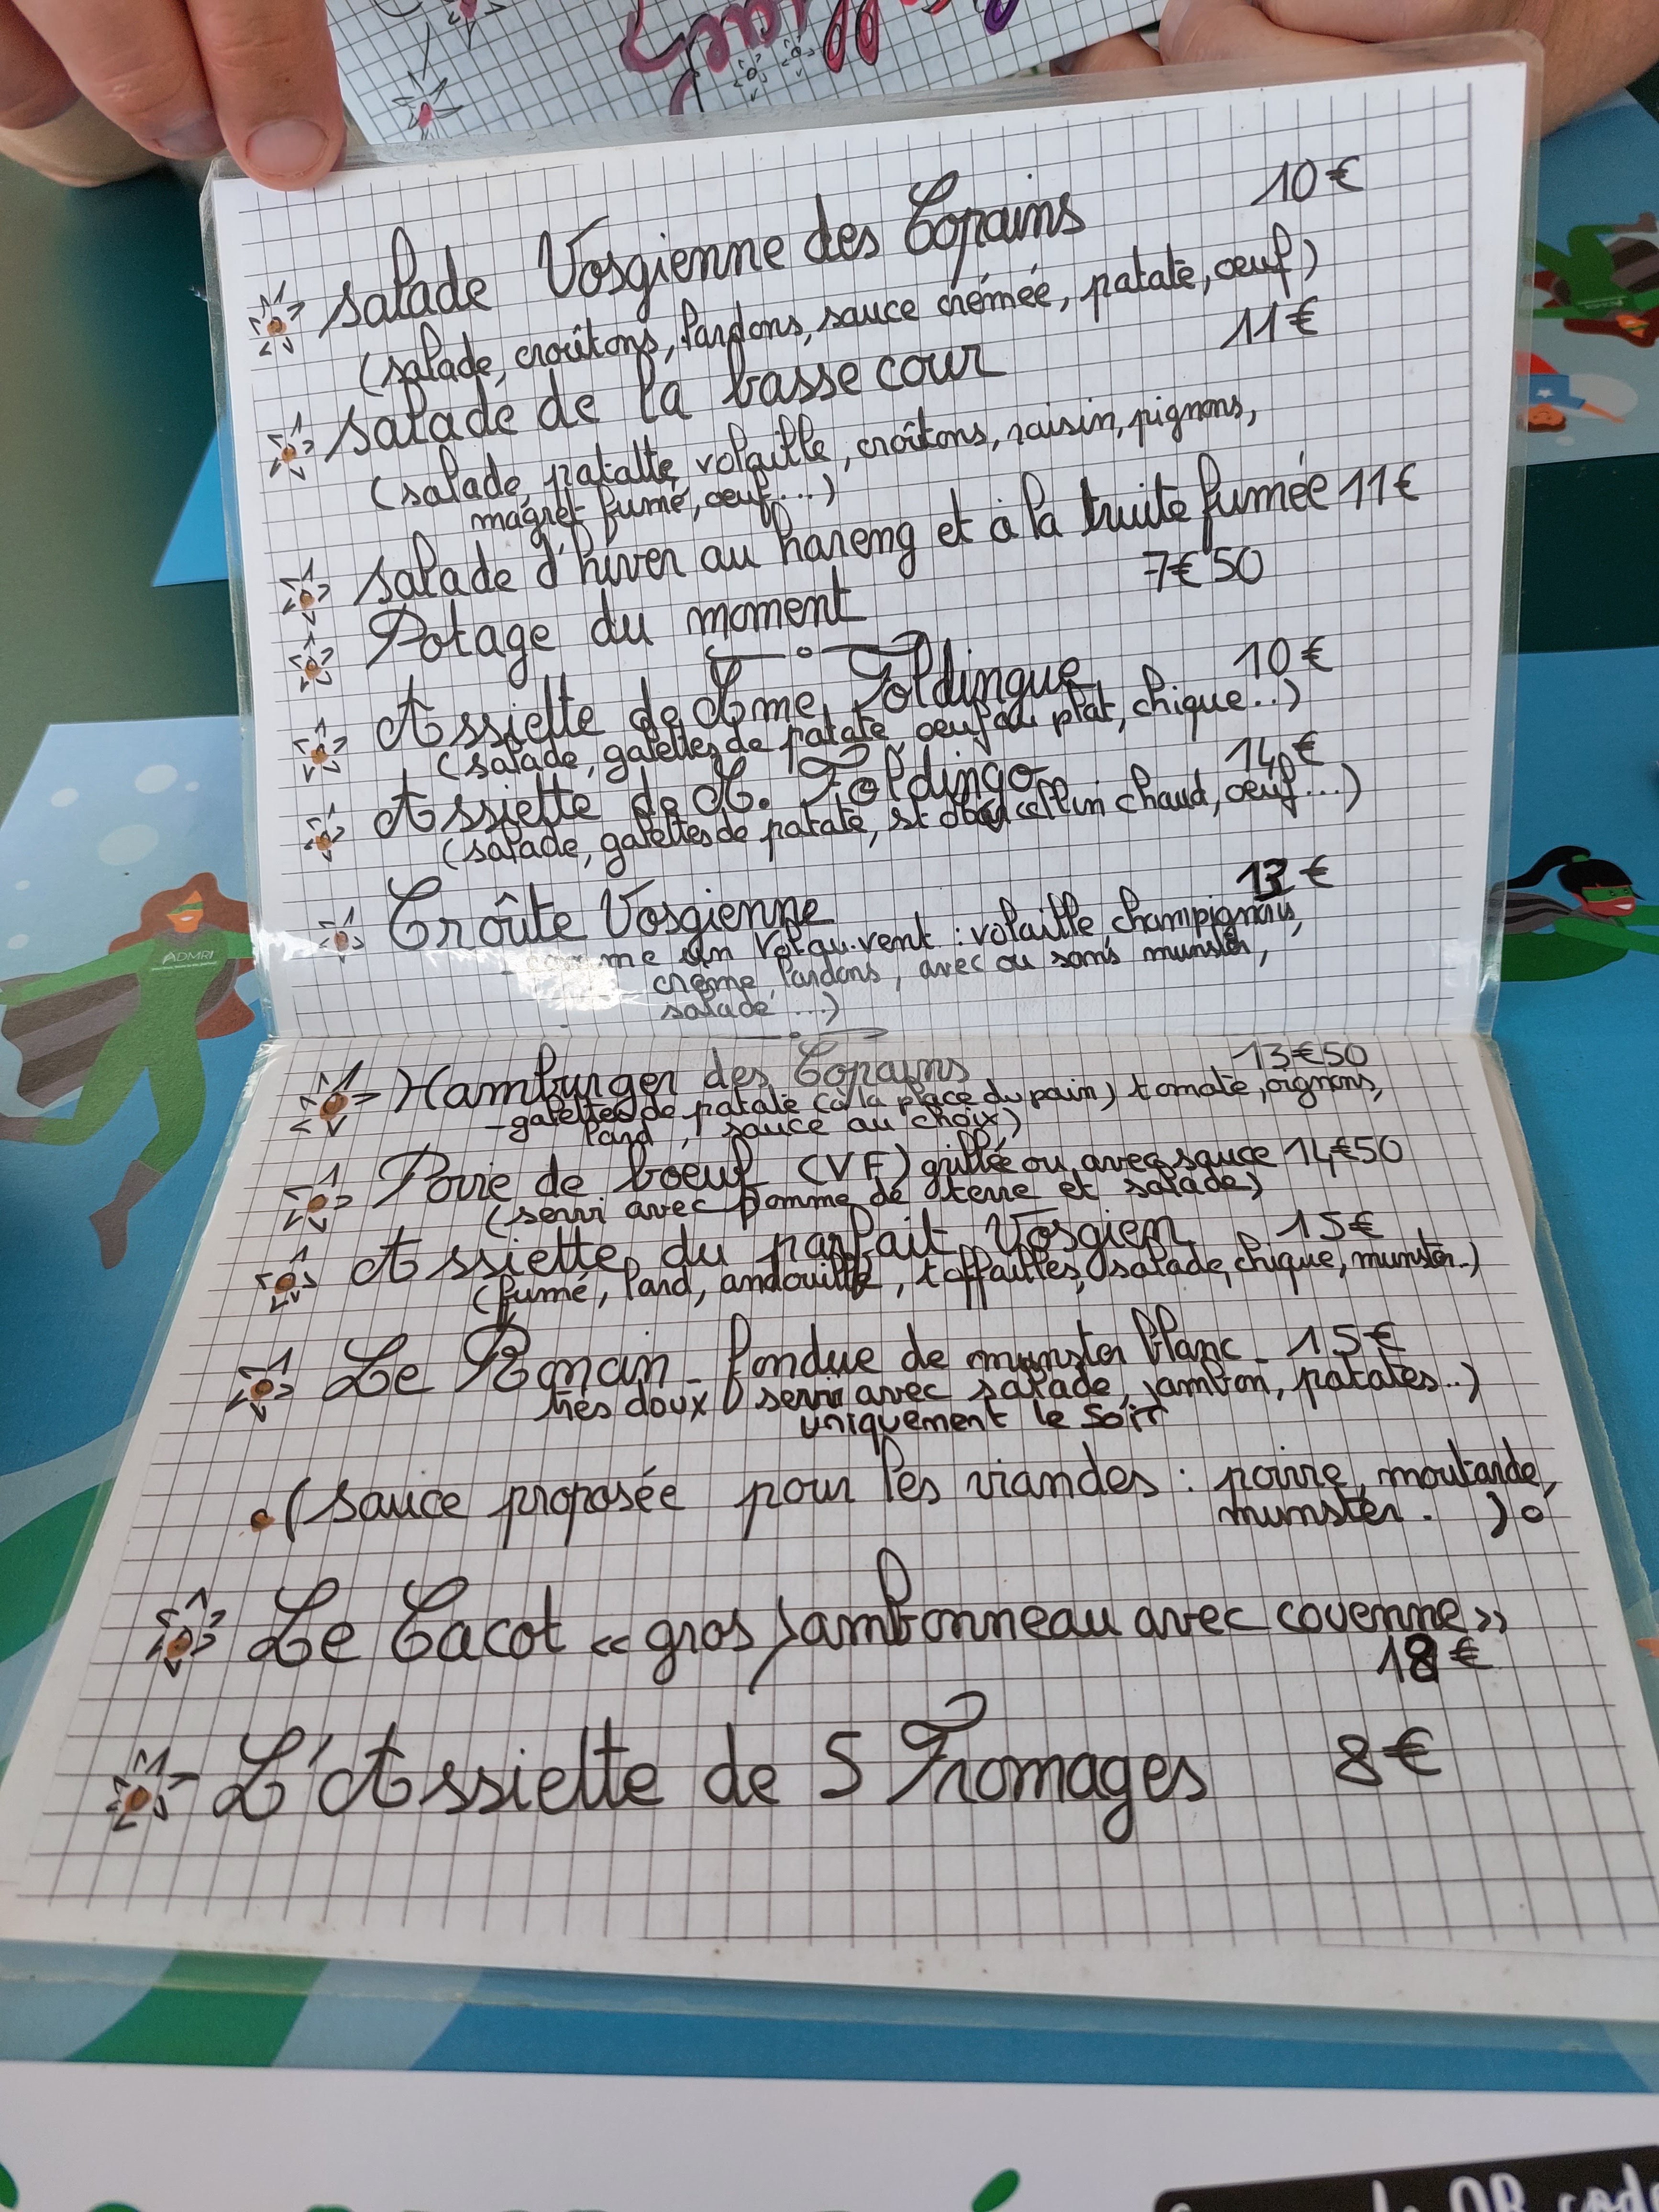 Salade Vosgienne des Copains 10€
(salade, croûtons, lardons, sauce crémée, patate, oeuf)
Salade de la basse cour 11€
(salade, patatte, volaille, croîtons, raisin, pignons,
magret fumé, oeuf...)
Salade d'hiver au hareng et à la truite fumée 11€
Potage du moment 7€50
Assiette de Mme Foldingue 10€
(salade, galettes de patate, oeuf au plat, chique...)
Assiette de M. Foldingo 14€
(salade, galettes de patate, st chaud, oeuf...)
Croûte Vosgienne 13€
comme un Vol.au.vent : volaille champignons,
crème, lardons, avec ou sans munster,
salade...)
Hamburger des Copains 13€50
-galettes de patate (à la place du pain) tomate, oignons,
lard, sauce au choix)
Poire de boeuf (VF) grillée ou avec sauce 14€50
(servi avec pomme de terre et salade)
Assiette du parfait Vosgien 15€
(fumé, lard, andouille, toffailles, salade, chique, munster..)
Le Ronain - fondue de munster blanc - 15€
très doux servi avec salade, jambon, patates..)
uniquement le soir
(sauce proposée pour les viandes : poivre, moutarde,
munster. )
Le Cacot « gros jambonneau avec couenne »
18€
L'Assiette de 5 Fromages 8€
ADMR